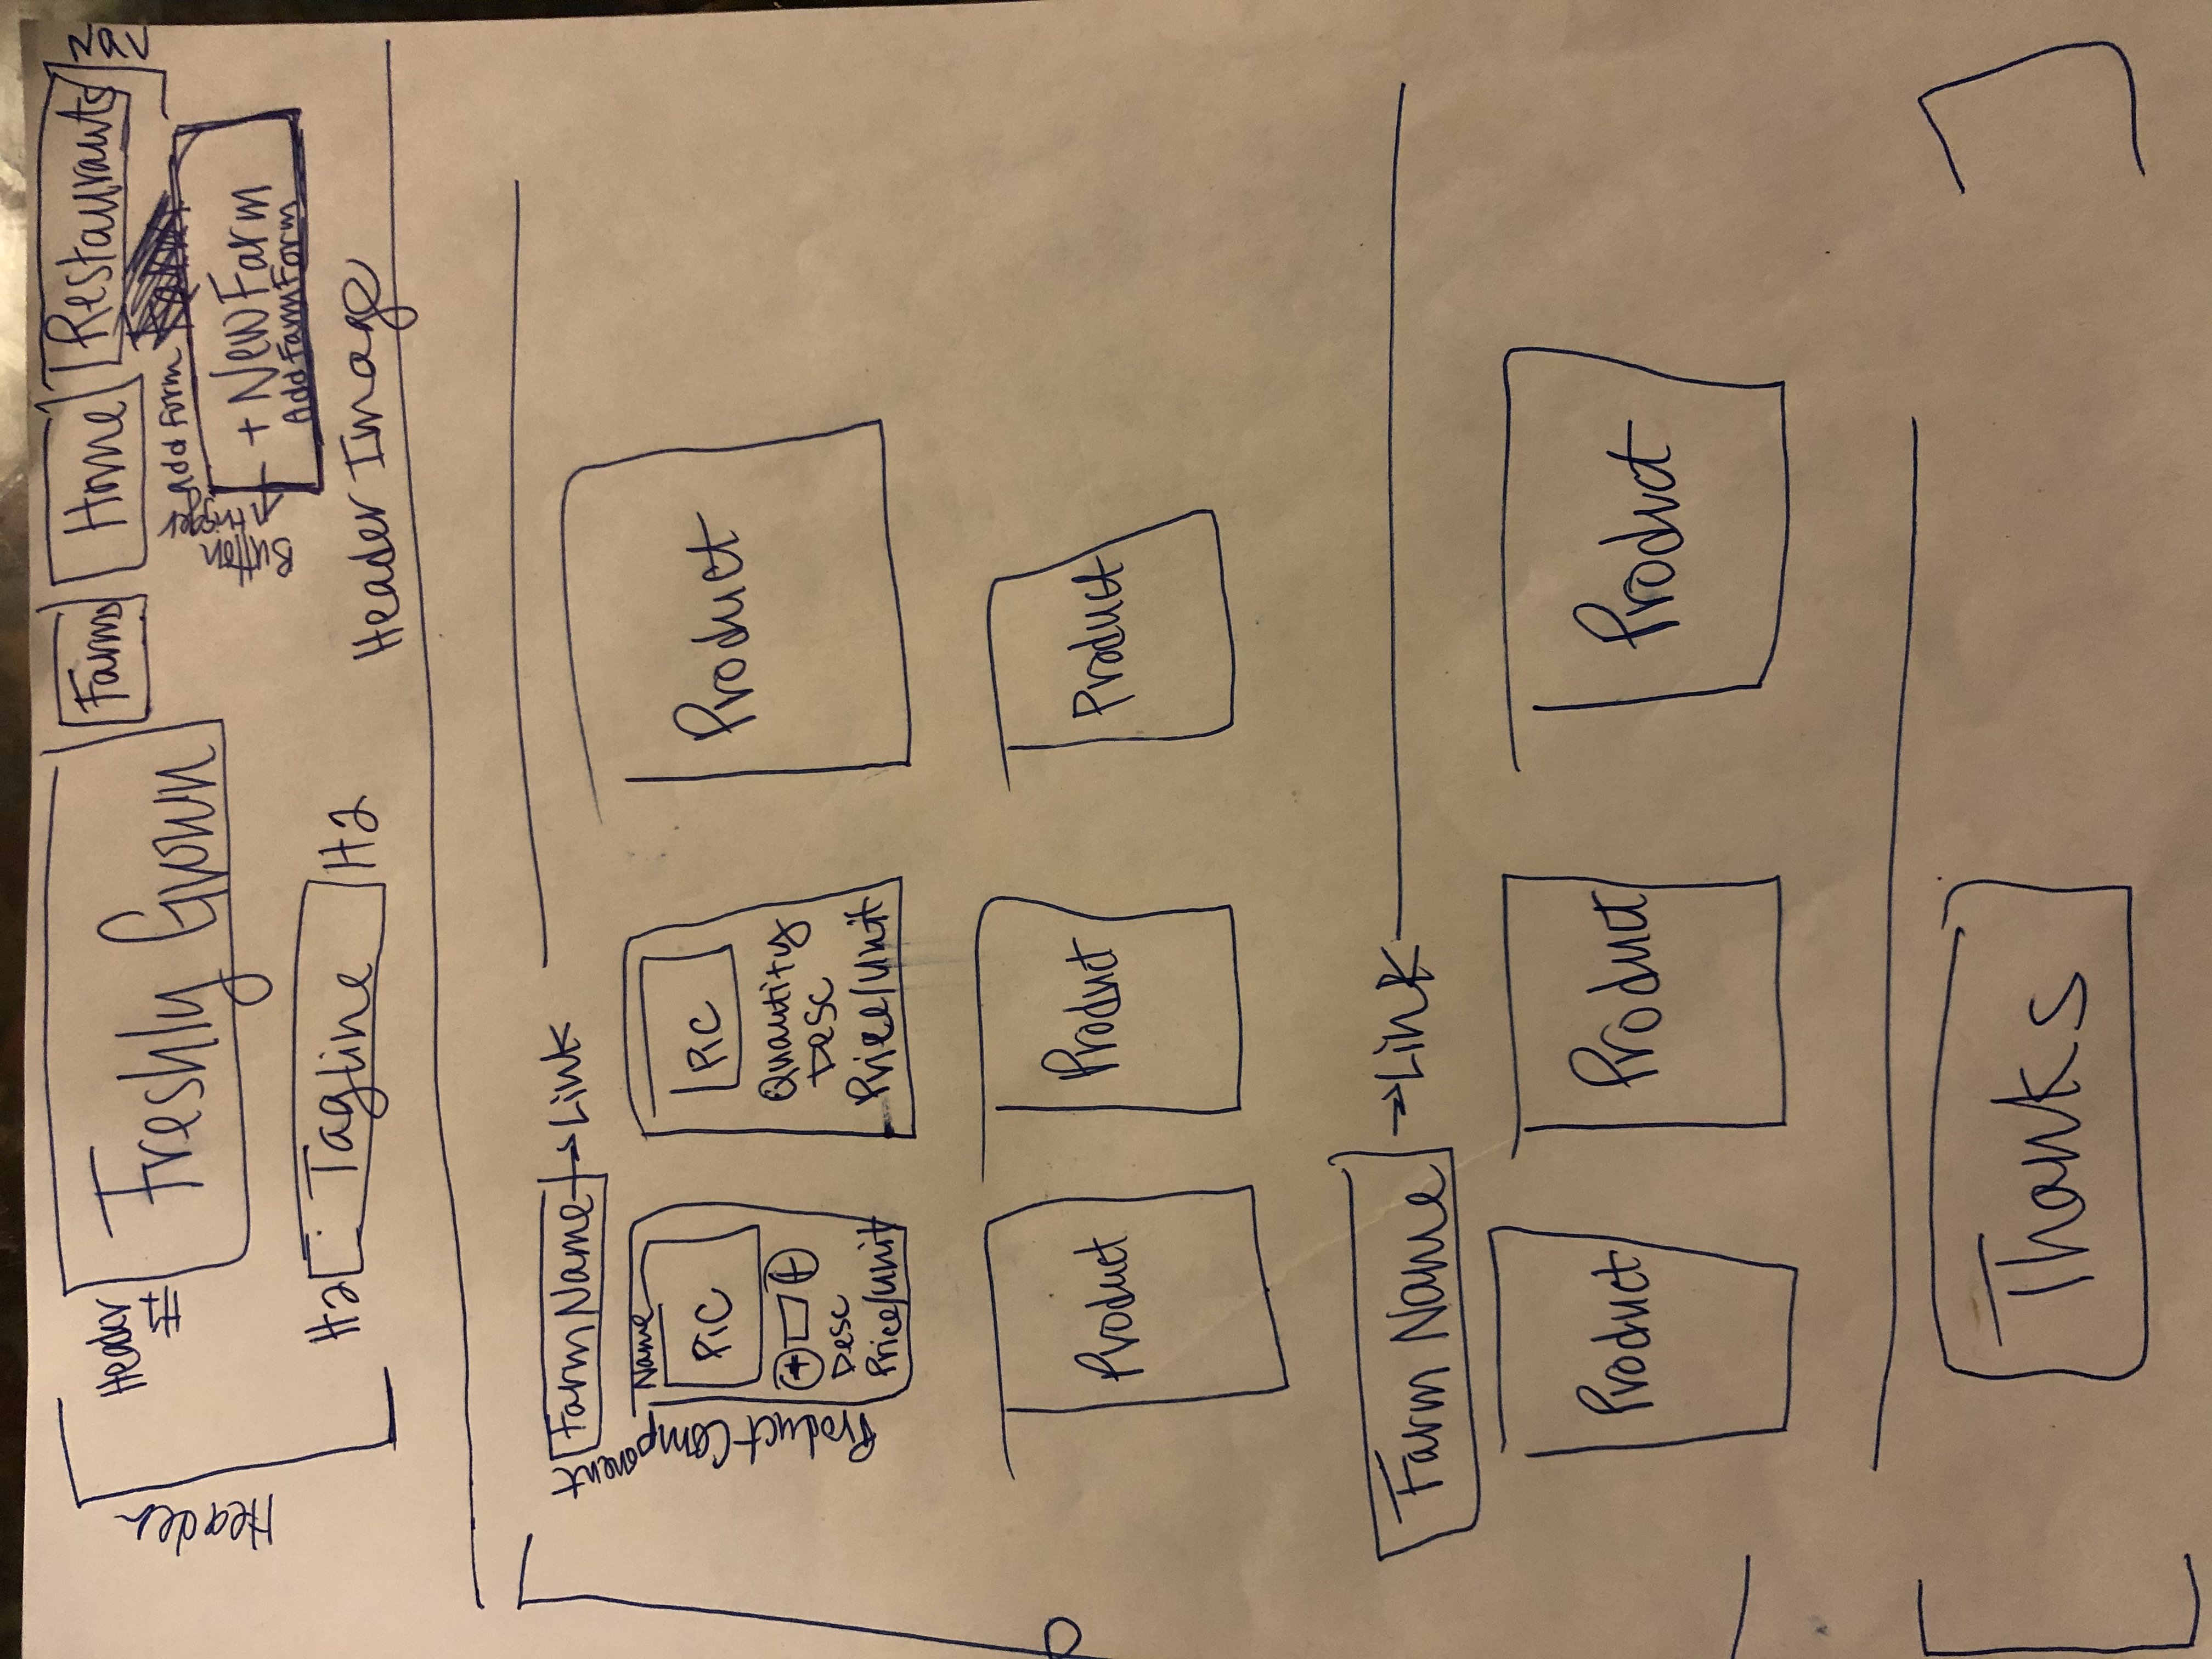 Header
Header
H1
Freshly Grown
Farms
Home
Restaurants
Nav
Button
trigger
Add Form
+ New Farm
Add Farm Form
H2
Tagline
H2
Header Image
Product Component
Farm Name → Link
Name
Pic
+
Desc
Price/Unit
Pic
Quantity
Desc
Price/Unit
Product
Product
Product
Product
Farm Name → Link
Product
Product
Product
Thanks